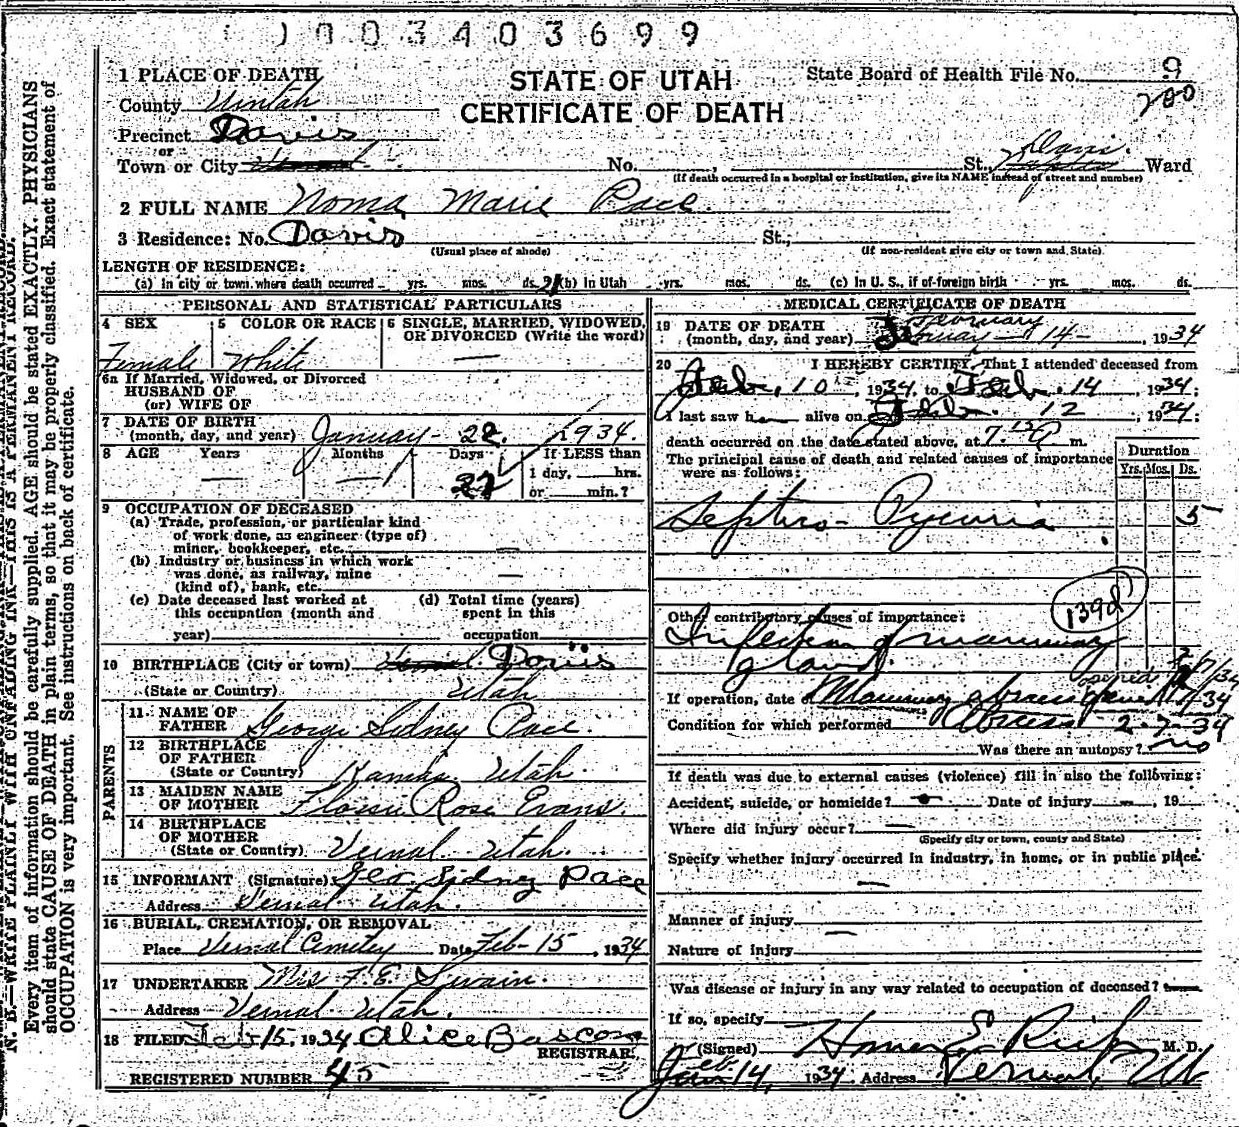 003403699
1 PLACE OF DEATH
STATE OF UTAH
CERTIFICATE OF DEATH
State Board of Health File No. 9
200
County Uintah
Precinct Davis
or
Town or City No. St., Davis. Ward
(If death occurred in a hospital or institution, give its NAME instead of street and number)
2 FULL NAME Noma Marie Pace.
3 Residence: No. Davis St.,
(Usual place of abode) (If non-resident give city or town and State).
LENGTH OF RESIDENCE:
(a) In city or town where death occurred yrs. mos. ds. (b) In Utah yrs. mos. ds. (c) In U. S., if of foreign birth yrs. mos. ds.
PERSONAL AND STATISTICAL PARTICULARS
4 SEX 5 COLOR OR RACE 6 SINGLE, MARRIED, WIDOWED, OR DIVORCED (Write the word)
Female White —
6a If Married, Widowed, or Divorced
HUSBAND OF
(or) WIFE OF
7 DATE OF BIRTH
(month, day, and year) January - 22. 1934.
8 AGE Years Months Days If LESS than
1 day, hrs.
or min.?
9 OCCUPATION OF DECEASED
(a) Trade, profession, or particular kind
of work done, as engineer (type of)
miner, bookkeeper, etc. —
(b) Industry or business in which work
was done, as railway, mine
(kind of), bank, etc. —
(c) Date deceased last worked at
this occupation (month and
year)
(d) Total time (years)
spent in this
occupation
10 BIRTHPLACE (City or town) Vernal. Davis
(State or Country) Utah
PARENTS
11 NAME OF
FATHER George Sidney Pace.
12 BIRTHPLACE
OF FATHER
(State or Country) Kamas. Utah.
13 MAIDEN NAME
OF MOTHER Rose Evans.
14 BIRTHPLACE
OF MOTHER
(State or Country) Vernal. Utah.
15 INFORMANT (Signature) Geo Sidney Pace
Address Vernal Utah.
16 BURIAL, CREMATION, OR REMOVAL
Place Vernal Date Feb-15, 1934
17 UNDERTAKER Mrs F. E. Swain.
Address Vernal Utah.
18 FILED Feb 15, 1934 Alice Bascom
REGISTRAR.
REGISTERED NUMBER 45
MEDICAL CERTIFICATE OF DEATH
19 DATE OF DEATH February
(month, day, and year) 14 -, 1934
20 I HEREBY CERTIFY, That I attended deceased from
Feb. 10, 1934, to Feb. 14, 1934;
I last saw h alive on Feb. 12, 1934;
death occurred on the date stated above, at m.
The principal cause of death and related causes of importance
were as follows:
Duration
Yrs. Mos. Ds.
5
139d
Other contributory causes of importance:
Infection of mammary
gland.
If operation, date of Mammary abscess
Condition for which performed Abscess 2-7-34
Was there an autopsy? no
If death was due to external causes (violence) fill in also the following:
Accident, suicide, or homicide? Date of injury —, 19
Where did injury occur? —
(Specify city or town, county and State)
Specify whether injury occurred in industry, in home, or in public place.
—
Manner of injury
—
Nature of injury
Was disease or injury in any way related to occupation of deceased?
If so, specify
(Signed) Homer E. Rich M. D.
Feb. 14, 1934. Address Vernal, Ut
N. B.—WRITE PLAINLY WITH UNFADING INK—THIS IS A PERMANENT RECORD.
Every item of information should be carefully supplied. AGE should be stated EXACTLY. PHYSICIANS
should state CAUSE OF DEATH in plain terms, so that it may be properly classified. Exact statement of
OCCUPATION is very important. See instructions on back of certificate.